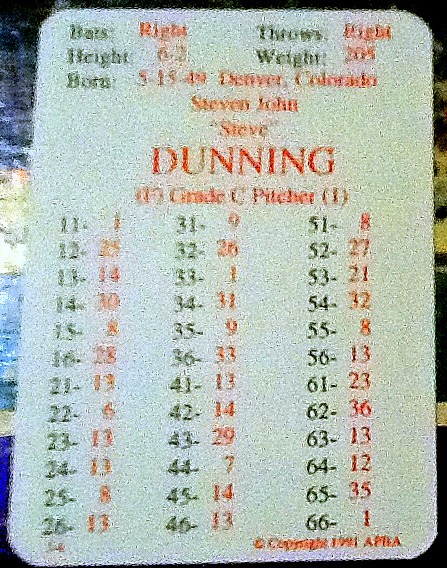 Bats: Right Throws: Right
Height: 6-2 Weight: 205
Born: 5-15-49, Denver, Colorado
Steven John
"Steve"
DUNNING
(P) Grade C Pitcher (1)
11- 1 31- 9 51- 8
12- 25 32- 26 52- 27
13- 14 33- 1 53- 21
14- 30 34- 31 54- 32
15- 8 35- 9 55- 8
16- 28 36- 33 56- 13
21- 13 41- 13 61- 23
22- 6 42- 14 62- 36
23- 13 43- 29 63- 13
24- 13 44- 7 64- 12
25- 8 45- 14 65- 35
26- 13 46- 13 66- 1
© Copyright 1991 APBA